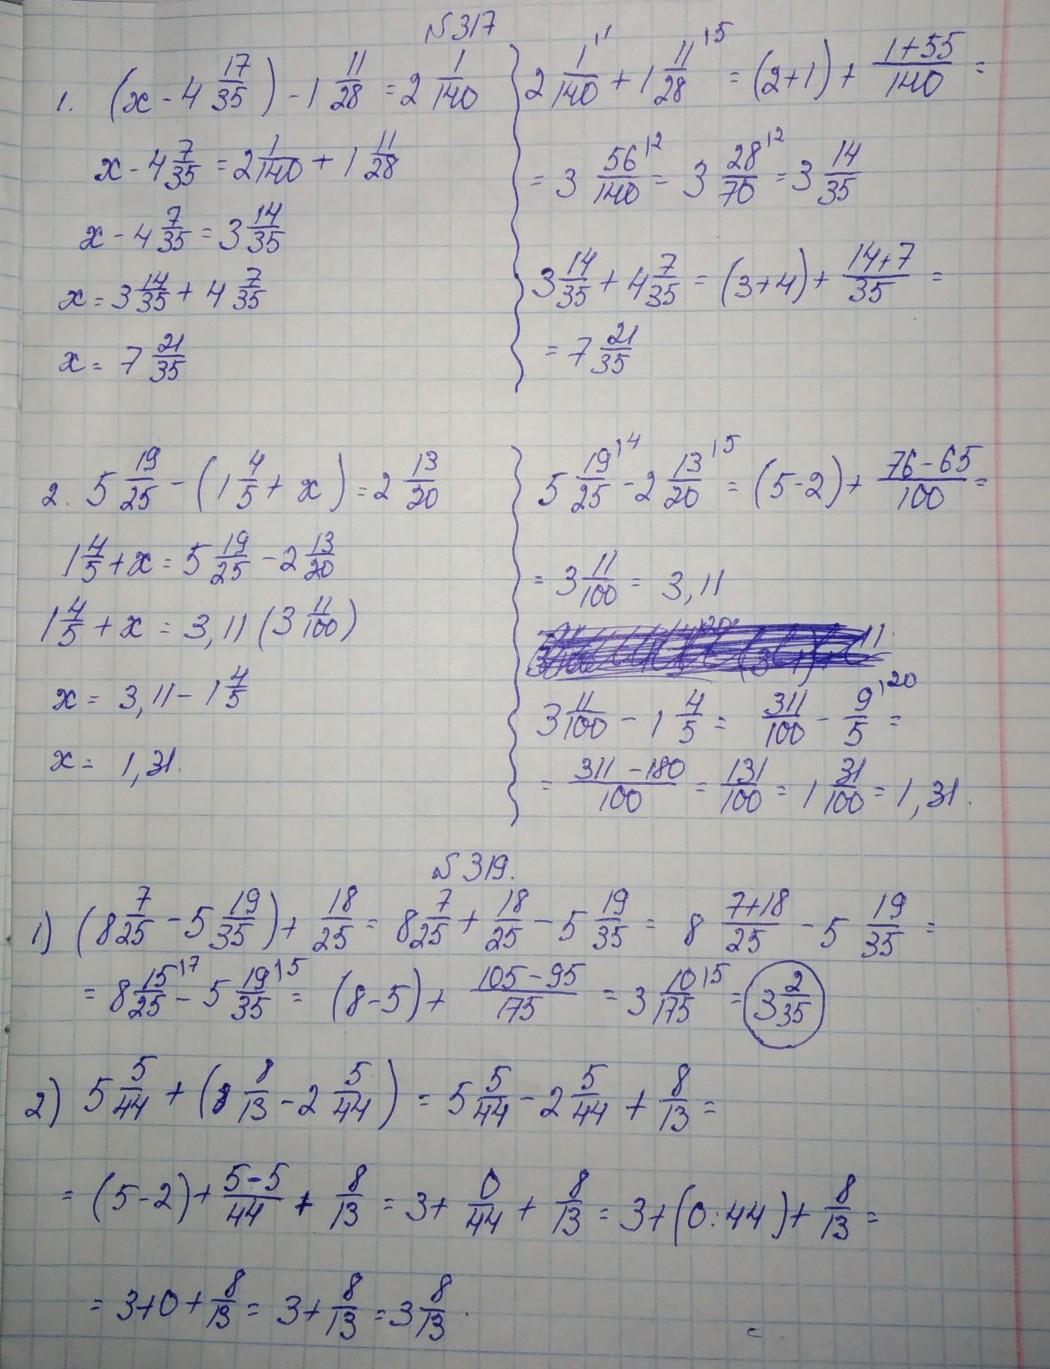 №317
1. (x - 4 17/35) - 1 11/28 = 2 1/140
x - 4 7/35 = 2 1/140 + 1 11/28
x - 4 7/35 = 3 14/35
x = 3 14/35 + 4 7/35
x = 7 21/35
2 1/140 ^1 + 1 11/28 ^5 = (2+1) + (1+55)/140 =
= 3 56/140 ^2 = 3 28/70 ^2 = 3 14/35
3 14/35 + 4 7/35 = (3+4) + (14+7)/35 =
= 7 21/35
2. 5 19/25 - (1 4/5 + x) = 2 13/20
1 4/5 + x = 5 19/25 - 2 13/20
1 4/5 + x = 3,11 (3 11/100)
x = 3,11 - 1 4/5
x = 1,31.
5 19/25 ^4 - 2 13/20 ^5 = (5-2) + (76-65)/100 =
= 3 11/100 = 3,11
3 11/100 - 1 4/5 = 311/100 - 9/5 ^20 =
= (311-180)/100 = 131/100 = 1 31/100 = 1,31.
№319.
1) (8 7/25 - 5 19/35) + 18/25 = 8 7/25 + 18/25 - 5 19/35 = 8 (7+18)/25 - 5 19/35 =
= 8 15/25 ^7 - 5 19/35 ^5 = (8-5) + (105-95)/175 = 3 10/175 ^5 = 3 2/35
2) 5 5/44 + (8/13 - 2 5/44) = 5 5/44 - 2 5/44 + 8/13 =
= (5-2) + (5-5)/44 + 8/13 = 3 + 0/44 + 8/13 = 3 + (0:44) + 8/13 =
= 3+0 + 8/13 = 3 + 8/13 = 3 8/13.